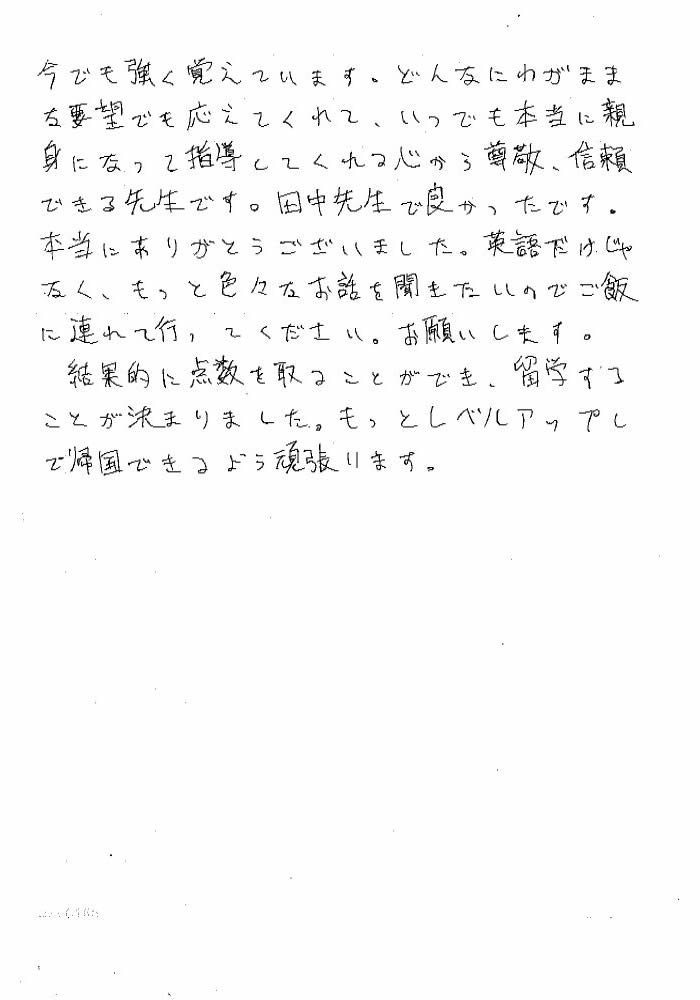 今でも強く覚えています。どんなにわがまま
な要望でも応えてくれて、いつでも本当に親
身になって指導してくれる心から尊敬、信頼
できる先生です。田中先生で良かったです。
本当にありがとうございました。英語だけじゃ
なく、もっと色々なお話を聞きたいのでご飯
に連れて行ってください。お願いします。
結果的に点数を取ることができ、留学する
ことが決まりました。もっとレベルアップし
て帰国できるよう頑張ります。